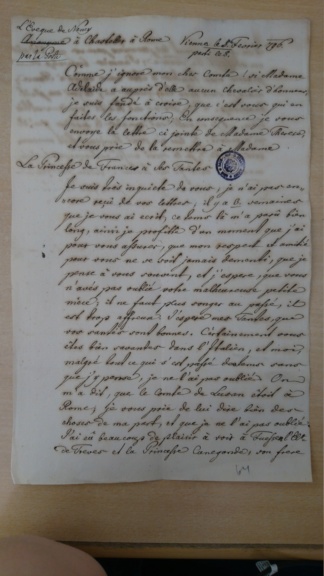 L'Evêque de Nancy
à Chastellux à Rome Vienne le 2 Fevrier 1796.
par la Poste
Comme j'ignore mon cher Comte si Madame
Adelaide a auprès d'elle aucun chevalier d'honneur
je suis fondé à croire, que c'est vous qui en
faites les fonctions. En consequence je vous
envoye la lettre ci jointe de Madame Therese
et vous prie de la remettre à Madame
La Princesse de France à ses Tantes
Je suis bien inquiete de vous, je n'ai pas en-
core reçu de vos lettres, il y a 3 semaines
que je vous ai ecrit, ce tems là m'a parû bien
long, ainsi je profite d'un moment que j'ai
pour vous assurer, que mon respect et amitié
pour vous ne se voit jamais dementi, que je
pense à vous souvent, et j'espere, que vous
n'avés pas oublié votre malheureuse petite
niece, il ne faut plus songer au passé, il
est trop affreux. J'espere mes Tantes, que
vos santés sont bonnes. Certainement vous
êtes bien ressenties dans l'Italie, et moi,
malgré tout ce qui s'est passé douleur sans
que j'y pense, je ne l'ai pas oublié. On
m'a dit, que le comte de étoit à
Rome, je vous prie de lui dire bien des
choses de ma part, et que je ne l'ai pas oublié.
J'ai eû beaucoup de plaisir à voir à l'El.
de Treves et la Princesse Cunegonde, son frere